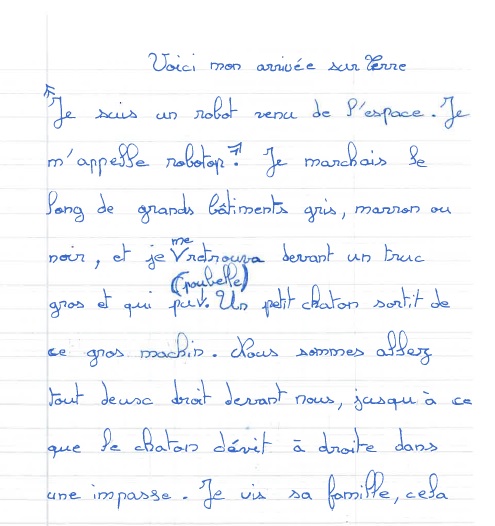 Voici mon arrivée sur Terre
Je suis un robot venu de l'espace. Je
m'appelle robotop. Je marchais le
long de grands bâtiments gris, marron ou
noir, et je me retrouva devant un truc
(poubelle)
gros et qui put. Un petit chaton sortit de
ce gros machin. Nous sommes allez
tout deusc droit devant nous, jusqu'à ce
que le chaton dévit à droite dans
une impasse. Je vis sa famille, cela